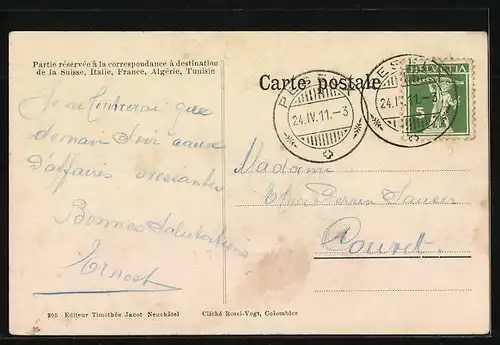 Partie réservée à la correspondance à destination
de la Suisse, Italie, France, Algérie, Tunisie
Carte postale
HELVETIA
24.IV.11.-3
24.IV.11.-3
5
Je ne rentrerai que
demain soir cause
d'affaires pressantes
Bonnes salutations
Ernest
Madame
Perrin
Couvet
205 Editeur Timothée Jacot Neuchâtel
Cliché Rossi-Vogt, Colombier